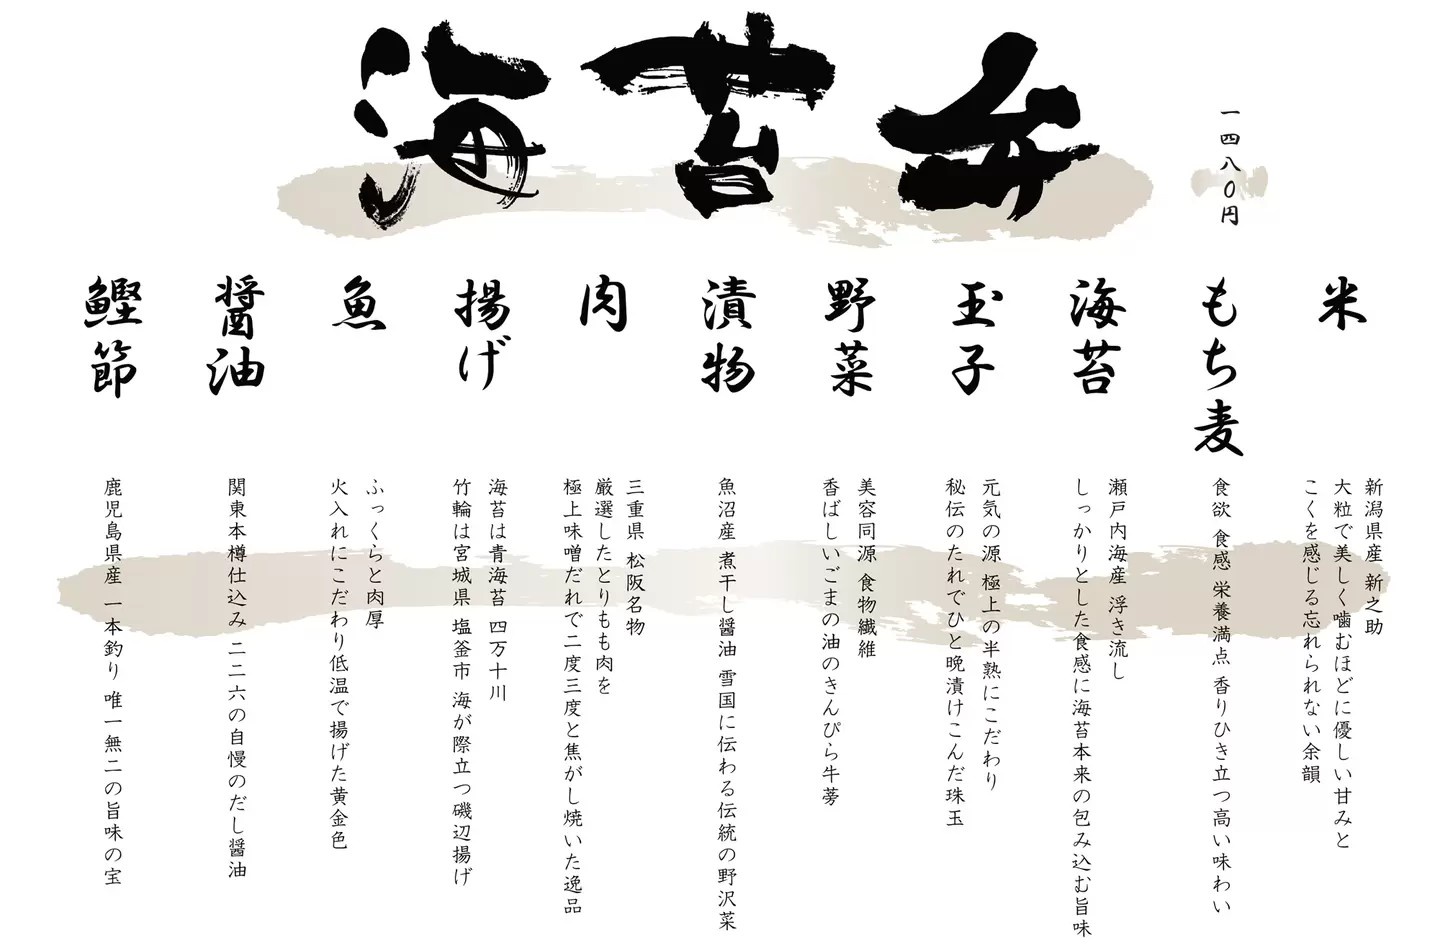 海苔弁
一四八〇円
米
新潟県産 新之助
大粒で美しく噛むほどに優しい甘みと
こくを感じる忘れられない余韻
もち麦
食欲 食感 栄養満点 香りひき立つ高い味わい
海苔
瀬戸内海産 浮き流し
しっかりとした食感に海苔本来の包み込む旨味
玉子
元気の源 極上の半熟にこだわり
秘伝のたれでひと晩漬けこんだ珠玉
野菜
美容同源 食物繊維
香ばしいごまの油のきんぴら牛蒡
漬物
魚沼産 煮干し醤油 雪国に伝わる伝統の野沢菜
肉
三重県 松阪名物
厳選したとりもも肉を
極上味噌だれで二度三度と焦がし焼いた逸品
揚げ
海苔は青海苔 四万十川
竹輪は宮城県 塩釜市 海が際立つ磯辺揚げ
魚
ふっくらと肉厚
火入れにこだわり低温で揚げた黄金色
醤油
関東本樽仕込み 二二六の自慢のだし醤油
鰹節
鹿児島県産 一本釣り 唯一無二の旨味の宝